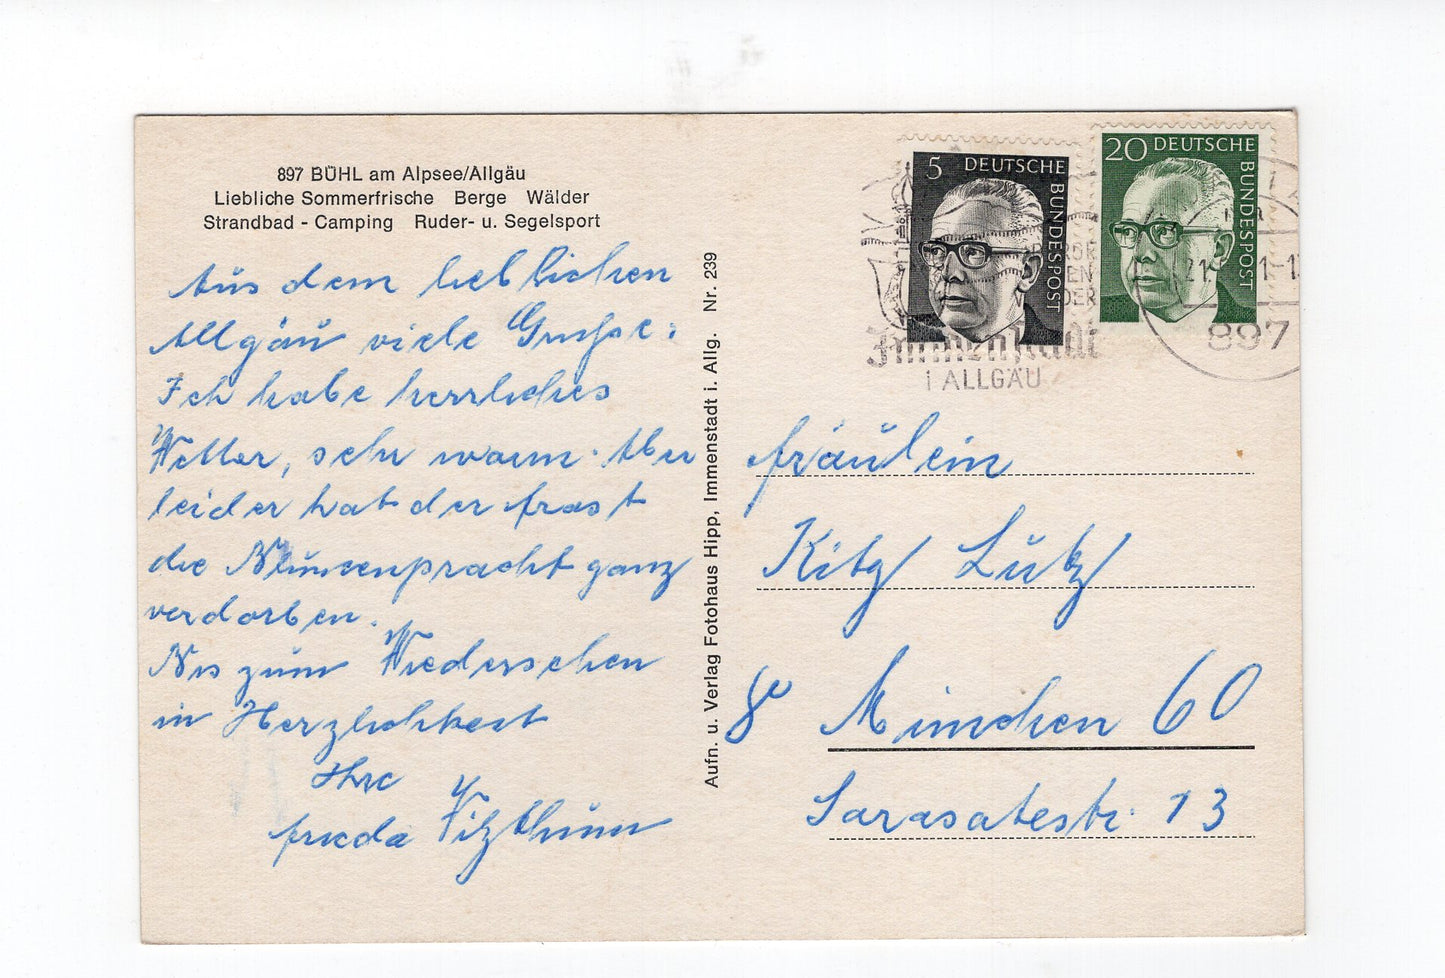 897 BÜHL am Alpsee/Allgäu
Liebliche Sommerfrische Berge Wälder
Strandbad - Camping Ruder- u. Segelsport
Aus dem lieblichen
Allgäu viele Grüße.
Ich habe herrliches
Wetter, sehr warm. Aber
leider hat der Frost
die Blumenpracht ganz
verdorben.
Bis zum Wiedersehen
in Herzlichkeit
Ihre
Frieda Vitzthum
Aufn. u. Verlag Fotohaus Hipp, Immenstadt i. Allg. Nr. 239
5 DEUTSCHE BUNDESPOST
20 DEUTSCHE BUNDESPOST
Immenstadt
i ALLGÄU
897
Fräulein
Kitz Lutz
8 München 60
Sarasatestr. 13